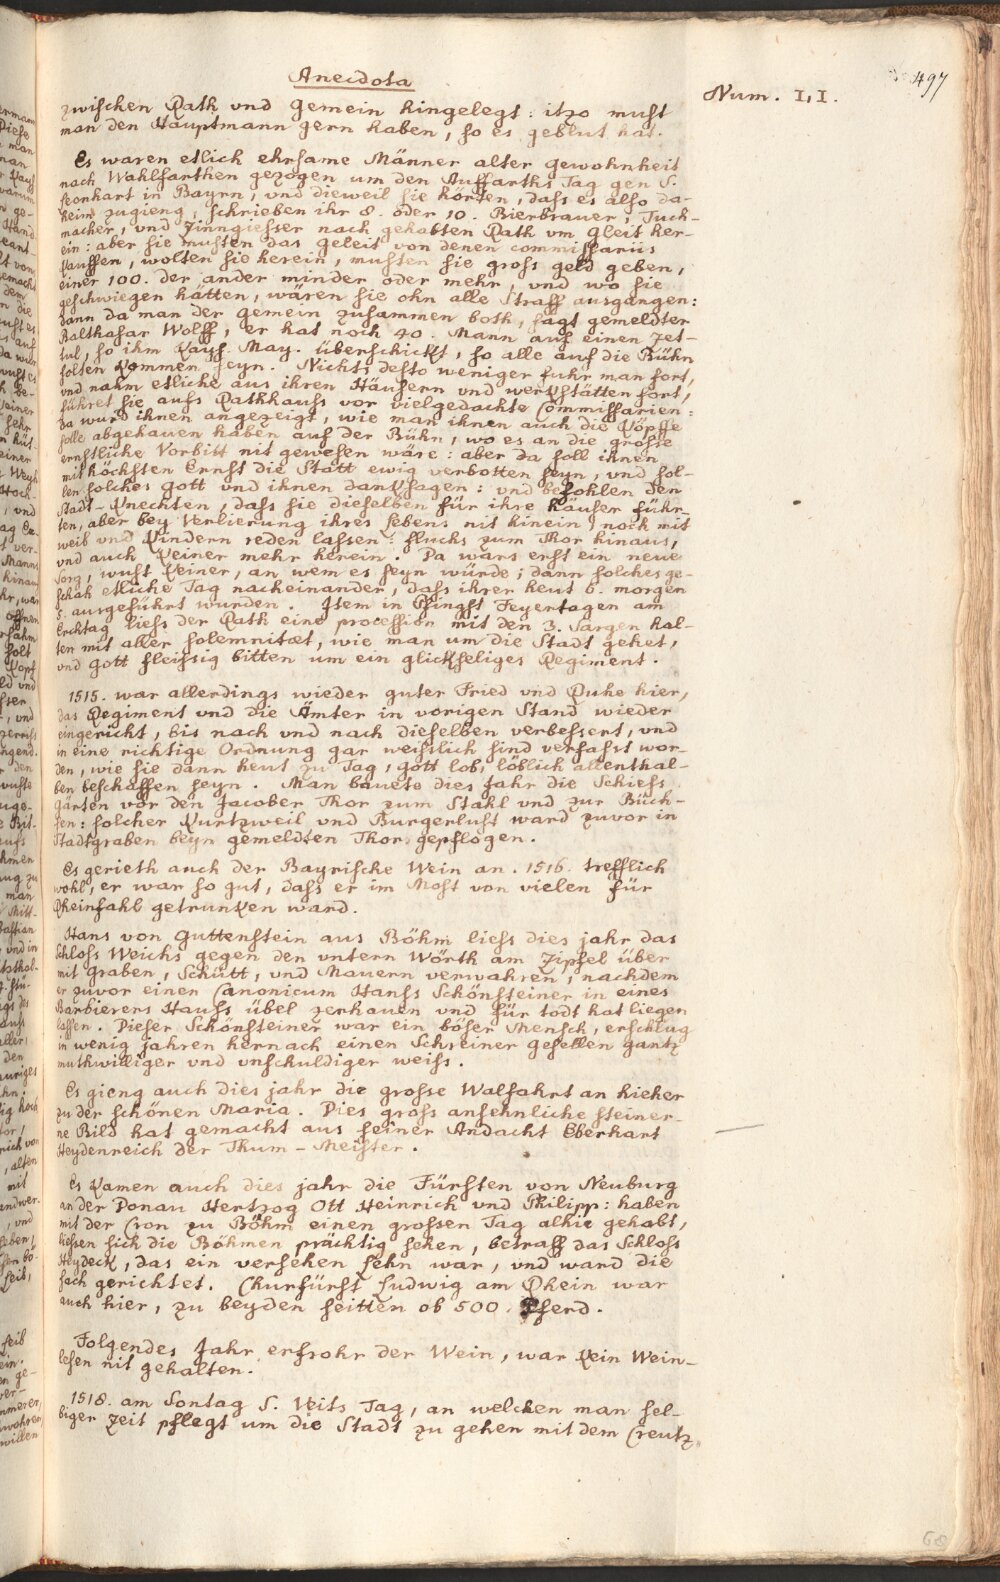 Anecdota
497
Num. I,I.
zwischen Rath vnd gemein hingelegt: itzo must
man den Hauptmann gern haben, so es geblut hat.
Es waren etlich ehrsame Männer alter gewohnheit
nach Wahlfarthen gezogen um den Auffarths Tag gen S.
Leonhart in Bayrn, vnd dieweil sie hörten, dass es also da-
heim zugieng, schrieben ihr 8. oder 10. Bierbrauer, Tuch-
macher, vnd Zinngiesser nach gehabten Rath vm gleit her-
ein: aber sie musten das geleit von denen commissariis
kauffen, wolten sie herein, musten sie gross geld geben,
einer 100. der ander minder oder mehr, vnd wo sie
geschwiegen hätten, wären sie ohn alle Straff ausgangen:
dann da man der gemein zusammen both, sagt gemeldter
Balthasar Wolff, er hat noch 40. Mann auf einen Zet-
tul, so ihm Kays. May. überschickt, so alle auf die Bühn
solten kommen seyn. Nichts desto weniger fuhr man fort,
vnd nahm etliche aus ihren Häusern vnd werckstätten fort,
führet sie aufs Rathhauss vor vielgedachte Commissarien:
da wurd ihnen angezeigt, wie man ihnen auch die Köpffe
solle abgehauen haben auf der Bühn, wo es an die grosse
ernstliche Vorbitt nit gewesen wäre: aber da soll ihnen
mit höchsten Ernst die Statt ewig verbotten seyn, vnd sol-
len solches gott vnd ihnen dancksagen: vnd befohlen den
Stadt-Knechten, dass sie dieselben für ihre häuser führ-
ten, aber bey Verlierung ihres lebens nit hinein, noch mit
weib vnd Kindern reden lassen: flucks zum Thor hinaus,
vnd auch keiner mehr herein. Da wars erst ein neue
Sorg, wust keiner, an wem es seyn würde; dann solches ge-
schah etliche Tag nacheinander, dass ihrer heut 6. morgen
5. ausgeführt wurden. Item in Pfingst Feyertagen am
Erchtag liess der Rath eine procession mit den 3. Särgen hal-
ten mit aller solemnitæt, wie man um die Stadt gehet,
vnd gott fleissig bitten um ein glückseliges Regiment.
1515. war allerdings wieder guter Fried vnd Ruhe hier,
das Regiment vnd die Ämter in vorigen Stand wieder
eingericht, bis nach vnd nach dieselben verbessert, vnd
in eine richtige Ordnung gar weisslich sind verfasst wor-
den, wie sie dann heut zu Tag, gott lob, löblich allenthal-
ben beschaffen seyn. Man bauete dies Jahr die Schiess
gärten vor den Jacober Thor zum Stahl vnd zur Büch-
sen: solcher Kurtzweil vnd Burgerlust ward zuvor in
Stadtgraben beyn gemeldten Thor gepflogen.
Es gerieth auch der Bayrische Wein an. 1516. trefflich
wohl, er war so gut, dass er im Most von vielen für
Rheinfahl getruncken ward.
Hans von Guttenstein aus Böhm liess dies jahr das
Schloss Weichs gegen den vntern Wörth am Zipfel über
mit graben, Schütt, vnd Mauern verwahren, nachdem
er zuvor einen Canonicum Hanss Schönsteiner in eines
Barbierers Hauss übel zerhauen vnd für todt hat liegen
lassen. Dieser Schönsteiner war ein böser Mensch, erschlug
in wenig jahren hernach einen Schreiner gesellen gantz
muthwilliger vnd vnschuldiger weiss.
Es gieng auch dies jahr die grosse Walfahrt an hieher
zu der schönen Maria. Dies gross ansehnliche steiner-
ne Bild hat gemacht aus seiner Andacht Eberhart
Heydenreich der Thum-Meister.
Es kamen auch dies jahr die Fürsten von Neuburg
an der Donau Hertzog Ott Heinrich vnd Philipp: haben
mit der Cron zu Böhm einen grossen Tag alhie gehabt,
liessen sich die Böhmen prächtig sehen, betraff das Schloss
Heydeck, das ein versehen Lehn war, vnd ward die
sach gerichtet. Churfürst Ludwig am Rhein war
auch hier, zu beyden seitten ob 500. Pferd.
Folgendes Jahr erfrohr der Wein, war kein Wein-
lesen nit gehalten.
1518. am Sontag S. Veits Tag, an welchen man sel-
biger Zeit pflegt um die Stadt zu gehen mit dem Creutz,
68